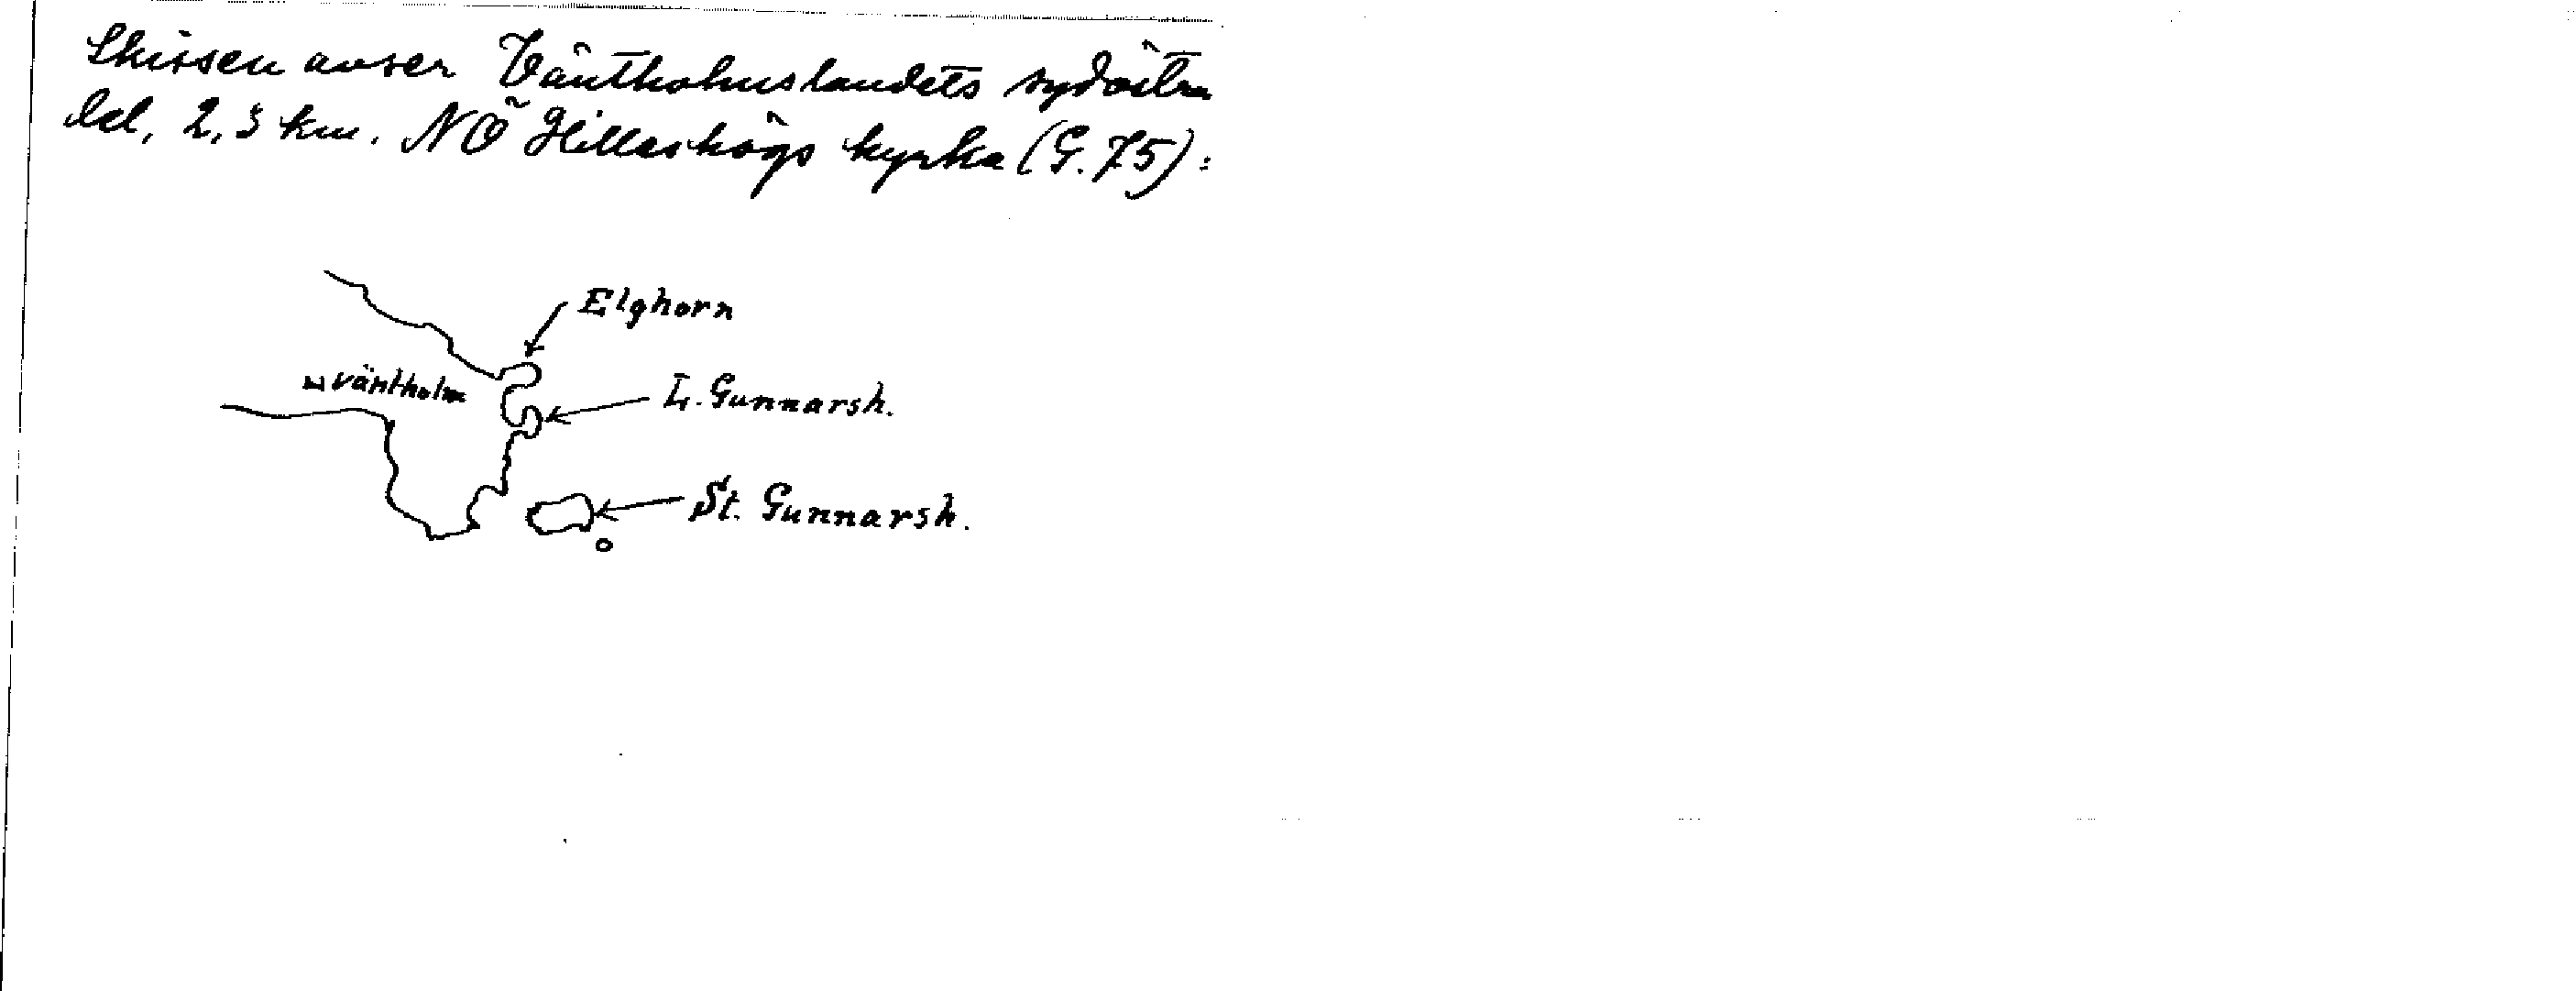 Skissen avser Väntholmslandets sydöstra
del, 2,3 km. NÖ Hilleshögs kyrka (G. 75):
Elghorn
Väntholm
L. Gunnarsh.
St. Gunnarsh.